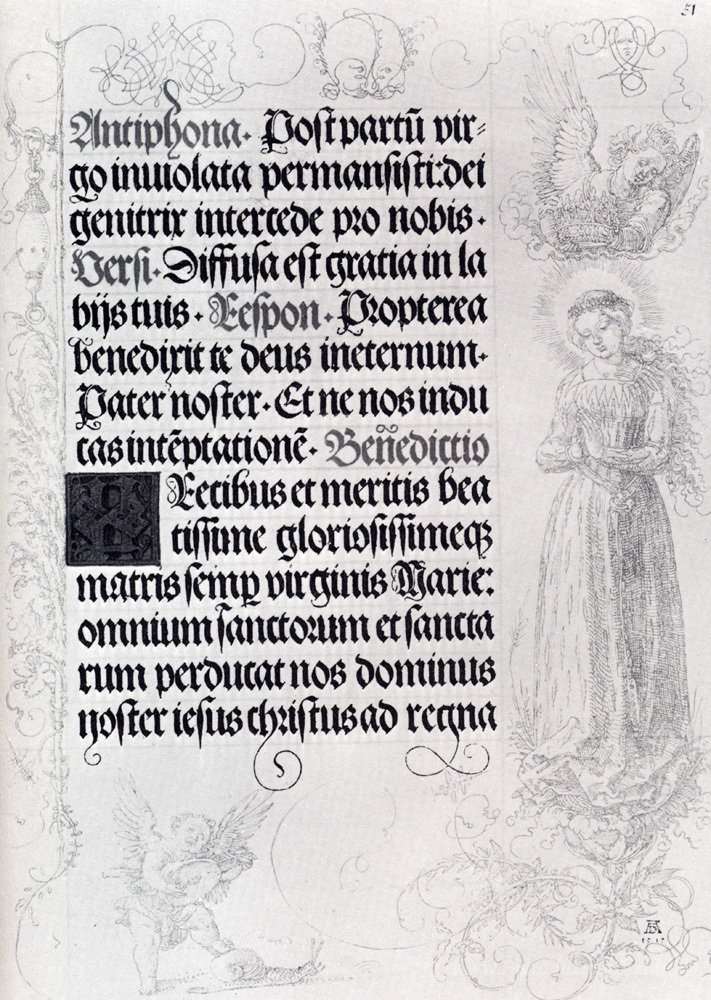 51
Antiphona. Postpartū vir=
go inuiolata permansisti:dei
genitrix intercede pro nobis.
Versi. Diffusa est gratia in la
bijs tuis. Respon. Propterea
benedixit te deus ineternum.
Pater noster. Et ne nos indu
cas intēptationē. Beñedictio
PRecibus et meritis bea
tissime gloriosissimeqꝫ
matris semꝑ virginis Marie:
omnium sanctorum et sancta
rum perducat nos dominus
noster iesus christus ad regna
AD
1515